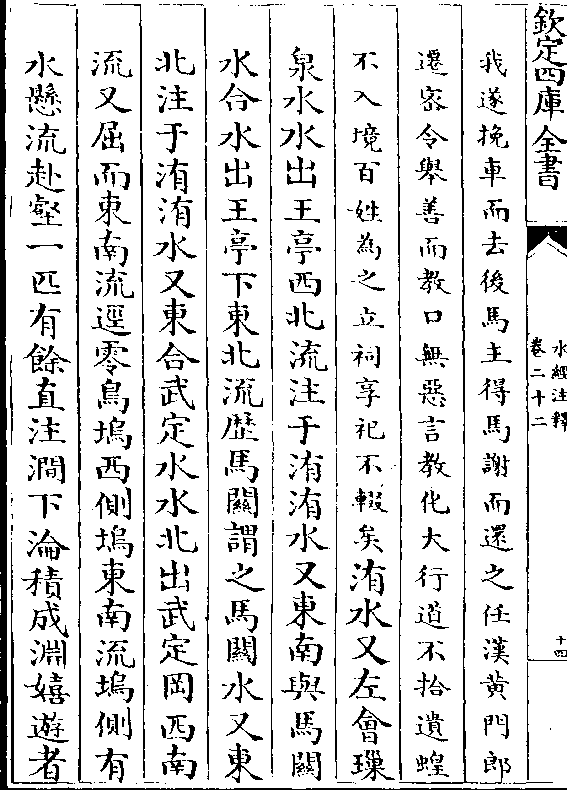 欽定四庫全書
水經注釋
卷二十二
十四
我遂挽車而去後馬主得馬謝而還之任漢黄門郎
遷密令舉善而教口無惡言教化大行道不拾遺蝗
不入境百姓為之立祠享祀不輟矣洧水又左會璅
泉水水出王亭西北流注于洧洧水又東南與馬關
水合水出王亭下東北流歴馬關謂之馬關水又東
北注于洧洧水又東合武定水水北出武定岡西南
流又屈而東南流逕零鳥塢西側塢東南流塢側有
水懸流赴壑一匹有餘直注澗下淪積成淵嬉遊者